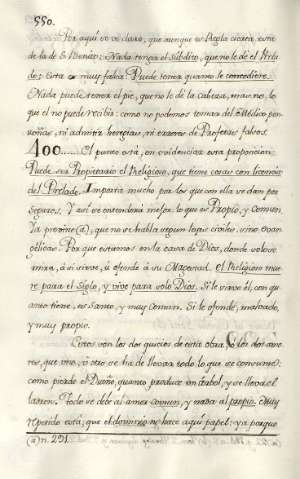 550.
Por aqui se ve claro, que aunque es Regla cierta, esta
de la de S. Benito: Nada tenga el Subdito, que no le dé el Prela
do: Esta es muy falsa: Puede tener quanto le concediere.
Nada puede tener el pie, que no le dé la cabeza, mas no, lo
que el no puede recibir: como no podemos tomar del Medico pon
zoñas, ni admitir heregias, ni errores de Profetas falsos.
400..... El punto está, en evidenciar esta proposicion:
Puede ser Propietario el Religioso, que tiene cosas con licencia
del Prelado. Importa mucho por los que con ella se dan por
seguros. Y asi se entenderá mejor lo que es Propio, y Comun
La primera (a), que no se habla segun leyes civiles, sino Evan
gelicas. Porque estamos en la casa de Dios, donde solo se
mira, si se sirve, ú ofende á su Magestad. el Religioso mue
re para el Siglo, y vive para solo Dios. Si le sirve él, con qu
anto tiene, es Santo, y muy Comun. Si le ofende, malvado,
y muy propio.
Estos son los dos quicios de esta obra. Los dos amo
res, que uno, ú otro se ha de llevar todo lo que se consume:
como pierde el Dueño, quanto produce un árbol, y se lleva el
ladron. Todo se debe al amor comun, y roba al propio. Muy
repetido está, que el dominio no hace aqui papel: ya porque
(a) n. 291.